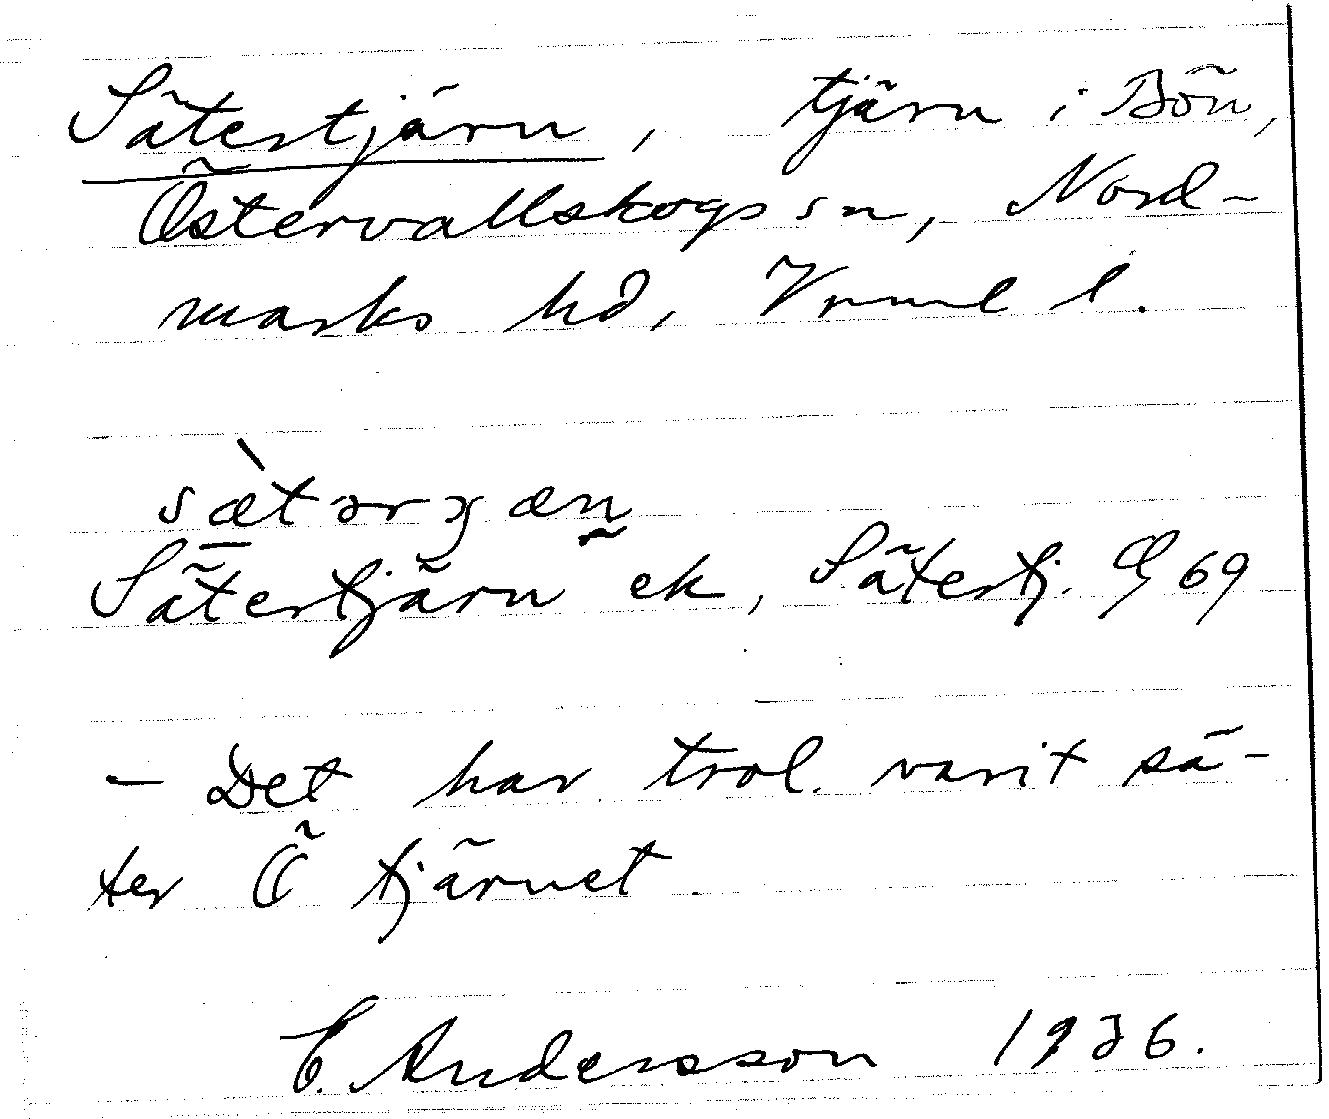 Sätertjärn, tjärn i Bön,
Östervallskogs sn, Nord-
marks hd, Vrml l.
sæ̀tərɣæn
Sätertjärn ek, Sätertj. G 69
– Det har trol. varit sä-
ter Ö tjärnet
E. Andersson 1936.